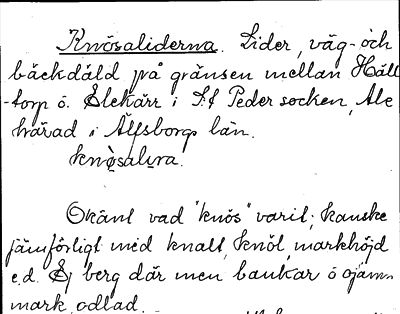 Knösaliderna. Lider, väg- och
bäckdäld på gränsen mellan Häll
-torp o. Slekärr i S:t Peder socken, Ale
härad i Älfsborgs län.
knøsalıra.
Okänt vad "knös" varit; kanske
jämförligt med knall, knöl, markhöjd
e.d. Ej berg där men bankar o ojämn
mark, odlad.